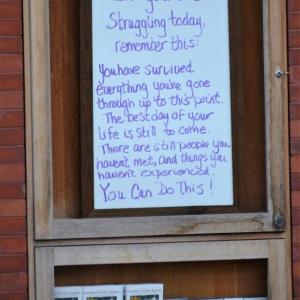 Struggling today,
remember this:
You have survived
everything you've gone
through up to this point.
The best day of your
life is still to come.
There are still people you
havent met, and things you
haven't experienced.
You Can Do This!